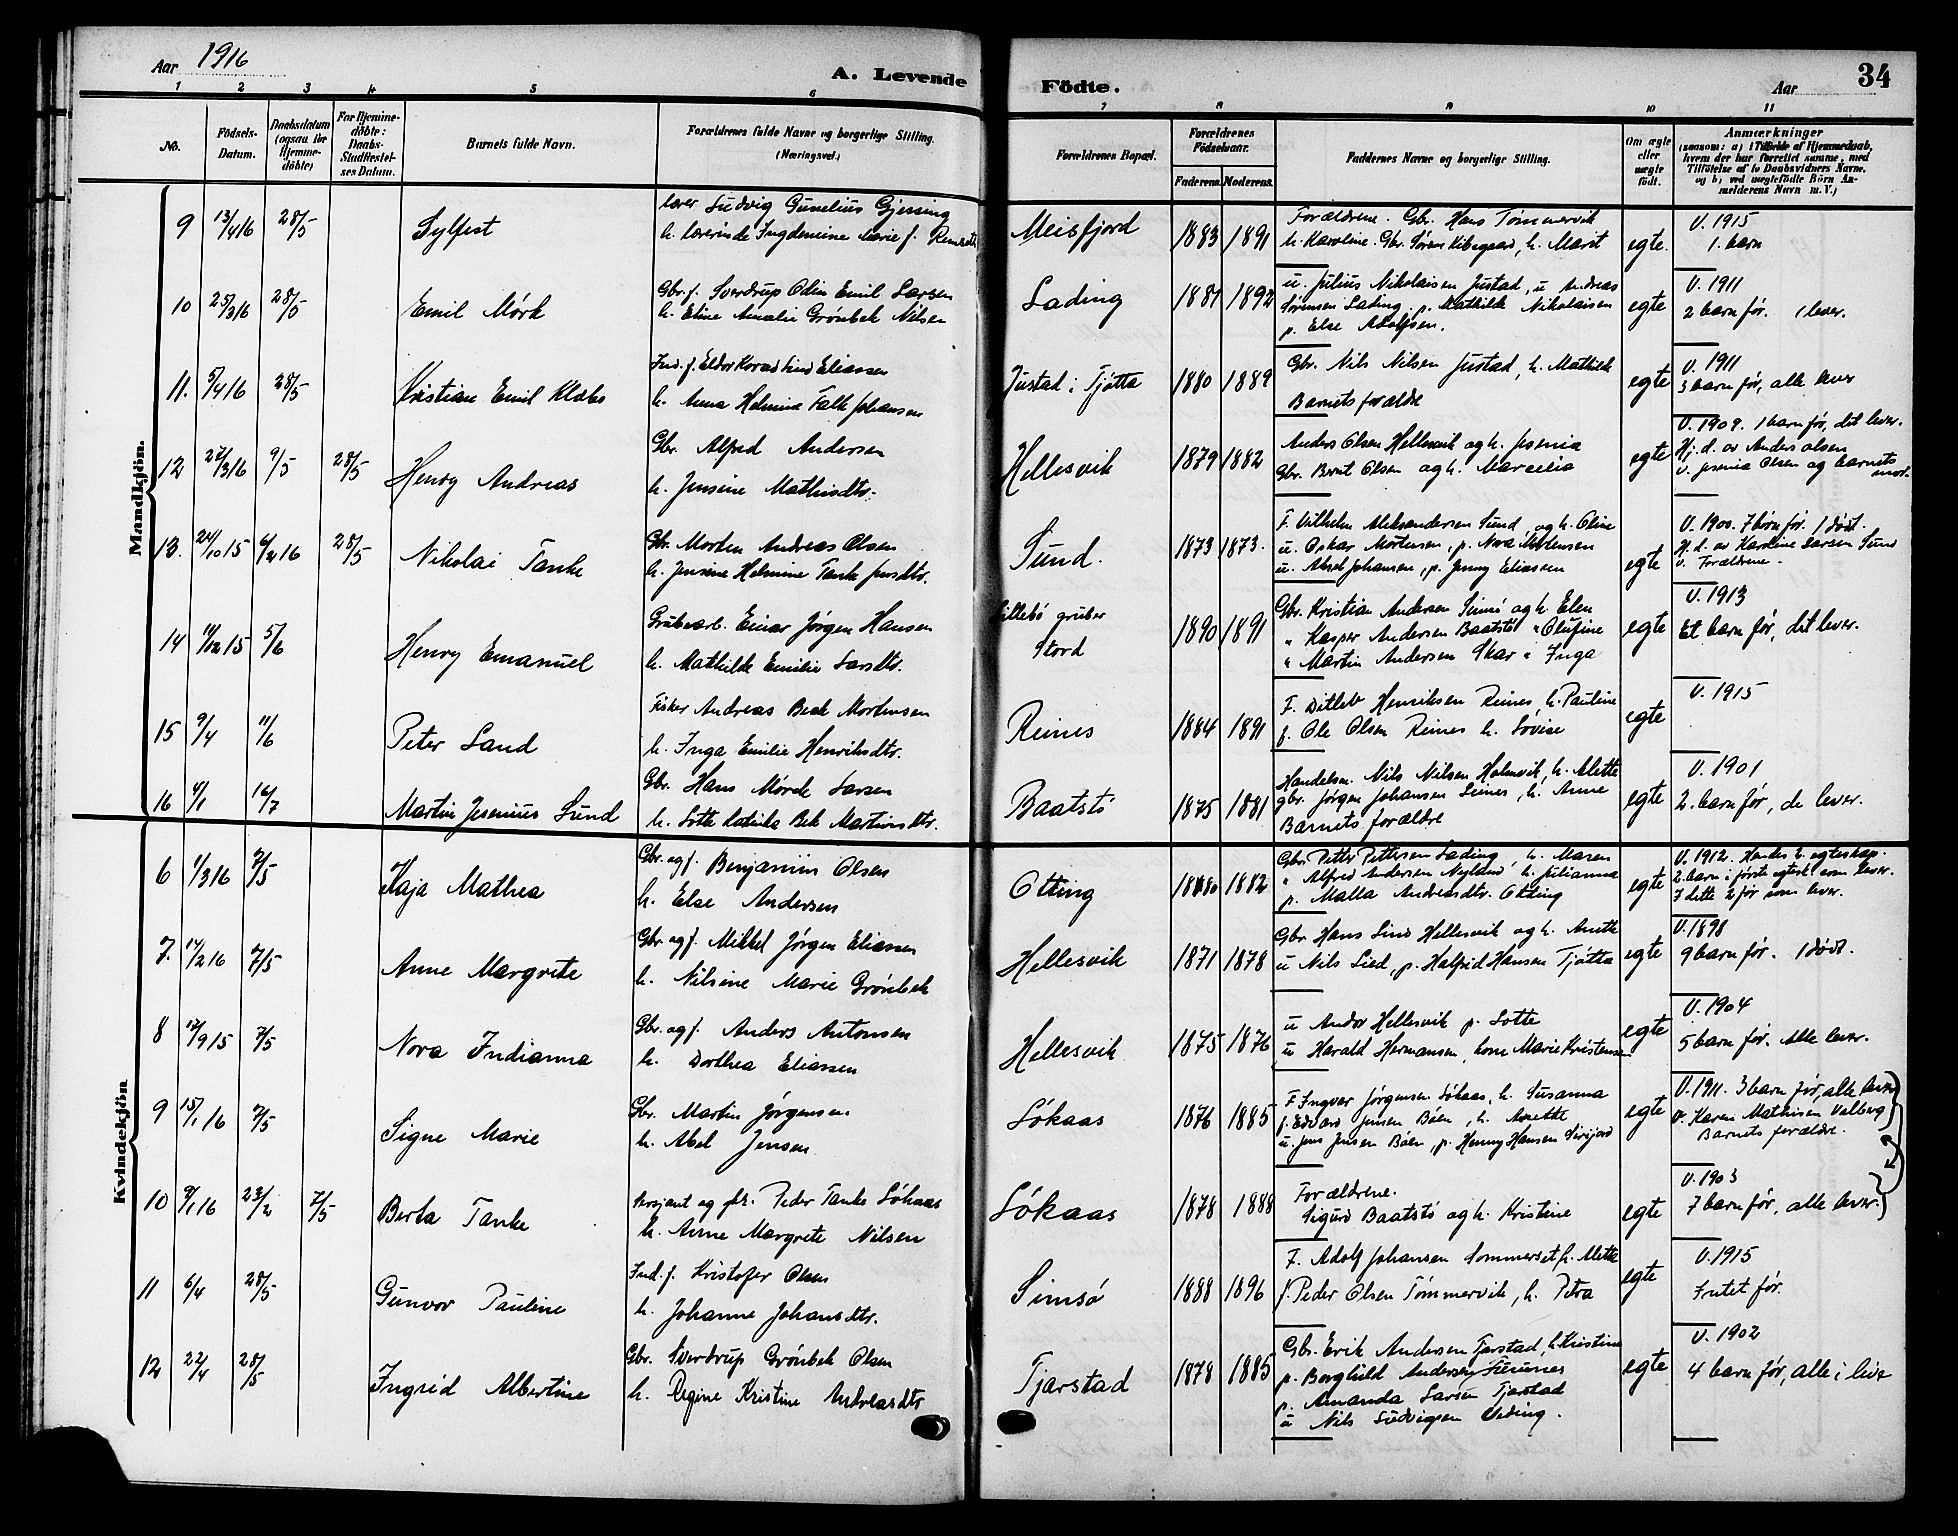 Aar 1916
A. Levende
Födte.
Aar
34
1 2 3 4 5 6 7 8 9 10 11
No.
Födsels-Datum.
Daabsdatum (ogsaa for Hjemme-döbte)
For Hjemme-döbte: Daabs-Stadfestel-ses Datum.
Barnets fulde Navn.
Forældrenes fulde Navne og borgerlige Stilling. (Næringsvei.)
Forældrenes Bopæl.
Forældrenes Födselsaar.
Faderens. Moderens.
Faddernes Navne og borgerlige Stilling.
Om ægte eller uægte födt.
Anmærkninger (saasom: a) i Tilfælde af Hjemmedaab, hvem der har forrettet samme, med Tilföielse af to Daabsvidners Navne, og b) ved uægtefödte Börn An-melderens Navn m. V.)
Mandkjön.
9 13/4 16 28/5 Sylfest
lærer Ludvig Gunelius Gjessing
h. lærerinde Ingdemine Marie f.
Meisfjord 1883 1891
Forældrene. Gbr. Hans Tømmervik
h. Karoline. Gbr. Søren Kibsgaard, h. Marit
egte.
V. 1915
1. barn
10 25/3 16 28/5 Emil Mörk
Gbr. f. Sverdrup Odin Emil Larsen
h. Eline Amalie Grönbek Nilsen
Lading 1887 1892
u. Julius Nikolaisen Justad, u Andreas
Sørensen Lading, p. Mathilde Nikolaisen
p. Else Adolfsen.
egte
V. 1911
2 barn før. 1 lever.
11. 5/4 16 28/5 Kristian Emil Klæbo
Ind. f. Eldor Konrad Lind Eliassen
h. Anna Helmine Falk Johansen
Justad i Tjøtta 1880 1889
Gbr. Nils Nilsen Justad, h. Mathilde
Barnets forældre
egte
V. 1911
3 barn før, alle lever
12 27/3 16 9/5 28/5 Henry Andreas
Gbr. Alfred Andersen
h. Jensine Mathisdtr.
Hellesvik 1879 1882
Anders Olsen Hellesvik og h. Jesenia
Gbr. Bernt Olsen og h. Marselia
egte
V. 1909. 1 barn før, det lever.
Hj. d. av Anders Olsen
v. Jesenia Olsen og barnets
mor.
13. 24/10 15 6/2 16 28/5 Nikolai Tanke
Gbr. Morten Andreas Olsen
h. Jensine Helmine Tanke Jensdtr.
Sund. 1873 1873.
F. Vilhelm Aleksandersen Sund, og h. Oline
u. Oskar Mortensen, p. Nora Mortensen
u. Aksel Johansen, p. Jenny Eliassen
egte
V. 1900. 7 barn før. 1 død.
H. d. av Karoline Larsen Sund
v. Forældrene.
14 11/12 15 5/6 Henry Emanuel
Grubearb. Einar Jørgen Hansen
h. Mathilde Emilie Larsdtr.
Lillebö gruber
Stord 1890 1891
Gbr. Kristian Andersen Simsö og h. Elen
" Kasper Andersen Baatstö " Olufine
" Martin Andersen Skar " Inga
egte
V. 1913
Et barn før, det lever.
15 9/4 11/6 Peter Sand
Fisker Andreas Beck Mortensen
h. Inga Emilie Henriksdtr.
Reines 1884 1891
F. Ditlev Henriksen Reines, h. Pauline
f. Ole Olsen Reines h. Lovise
egte
V. 1915
16 4/1 16/7 Martin Jesenius Sund
Gbr. Hans Mörck Larsen
h. Lotte Katinka Bek Martinsdtr.
Baatstö 1875 1881
Handelsm. Nils Nilsen Holmvik, h. Alette
gbr. Jørgen Johansen Leines, h. Anne
Barnets forældre
egte
V. 1901
2. barn før, de lever.
Kvindekjön
6 1/3 16 7/5 Kaja Mathea
Gbr. og f. Benjamin Olsen
h. Else Andersen
Otting 1880 1882
Gbr. Petter Pettersen Lading, h. Maren
" Alfred Andersen Nyland, h. Julianna
p. Malla Andreasdtr. Otting
egte
V. 1912. Hendes 2. egteskap.
2. barn i förste egtesk. som lever.
I dette 2 før som lever.
7. 14/2 16 7/5 Anne Margrete
Gbr. og f. Mikkel Jörgen Eliassen
h. Nilsine Marie Grönbek
Hellesvik 1871 1878
Gbr Hans Lind Hellesvik og h. Anette
u Nils Lied, p. Halfrid Hansen Tjøtta
egte
V. 1898
9 barn før. 1 död.
8 17/9 15 7/5 Nora Indianna
Gbr. og f. Anders Antonsen
h. Dorthea Eliassen
Hellesvik 1875 1876
u Andor Hellesvik p. Lotte
u Harald Hermansen, kone Marie Kristensen
egte
V. 1904
5 barn før. Alle lever.
9 15/1 16 7/5 Signe Marie
Gbr. Martin Jørgensen
h. Abel Jensen
Lökaas 1876 1885
F Ingvar Jørgensen Lökaas, h. Susanna
f. Edvard Jensen Böen, h. Anette
u. Jens Jensen Böen, p. Henny Hansen Seijord
egte
V. 1911. 3 barn før, alle lever
v. Karen Mathisen Valberg
Barnets forældre.
10 9/1 16 23/2 7/5 Berta Tanke
Sersjant og gbr. Peder Tanke Lökaas
h. Anne Margrete Nilsen
Lökaas 1878 1888
Forældrene.
Sigurd Baatstö og h. Kristine
egte
V. 1903
7 barn før, alle lever.
11 6/4 28/5 Gunvor Pauline
Ind. f. Kristofer Olsen
h. Johanne Johansdtr.
Simsö 1888 1896
F. Adolf Johansen Sommerset, h. Mette
f. Peder Olsen Tömmervik, h. Petra
egte
V. 1915
Intet før.
12 22/4 28/5 Ingrid Albertine
Gbr. Sverdrup Grönbek Olsen
h. Regine Kristine Andreasdtr
Tjarstad 1878 1885
Gbr. Erik Andersen Tjarstad, h. Kristine
p. Borghild Andersen
p. Amanda Larsen Tjarstad
u Nils Ludvigsen Veding.
egte
V. 1902
4 barn før, alle i live